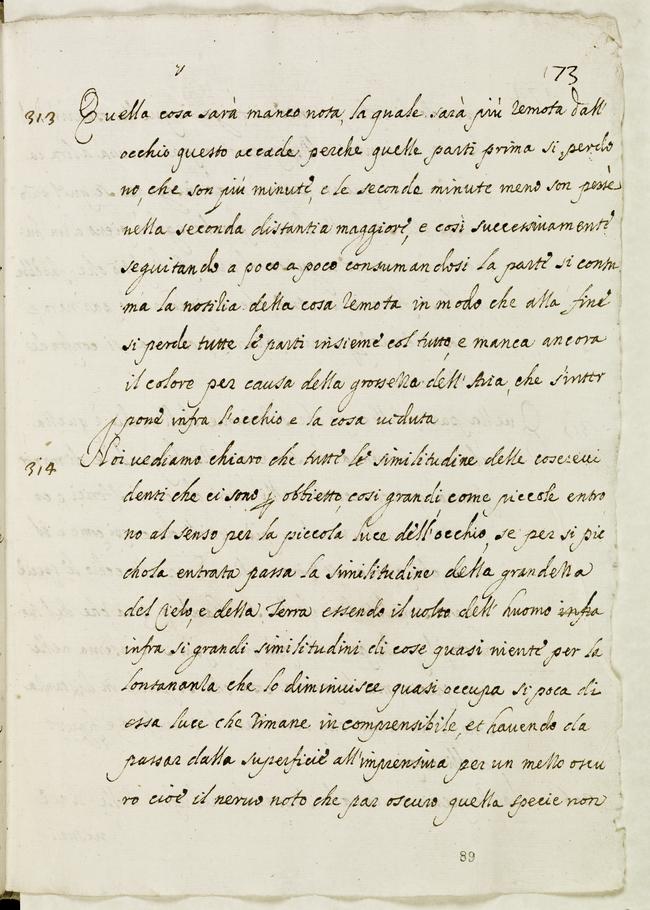 173
313 Quella cosa sarà manco nota, la quale sarà più remota dall'
occhio questo accade perche quelle parti prima si perdo
no, che son più minute, e le seconde minute meno son perse
nella seconda distantia maggiore, e così successivamente
seguitando a poco a poco consumandosi la parte si consu
ma la notilia della cosa remota in modo che alla fine
si perde tutte le parti insieme col tutto, e manca ancora
il colore per causa della grossezza dell'Aria, che s'inter
pone infra l'occhio e la cosa veduta
314 Noi vediamo chiaro che tutte le similitudine delle cose evi
denti che ci sono obbietto, così grandi come piccole entro
no al senso per la piccola luce dell'occhio, se per si pic
chola entrata passa la similitudine della grandezza
del Cielo, e della Terra essendo il volto dell'huomo infra
infra si grandi similitudini di cose quasi niente per la
lontananza che lo diminuisce quasi occupa si poca di
essa luce che rimane incomprensibile, et havendo da
passar dalla superficie all'imprensiva per un mezzo oscu
ro cioè il nervo noto che par oscuro quella specie non
89